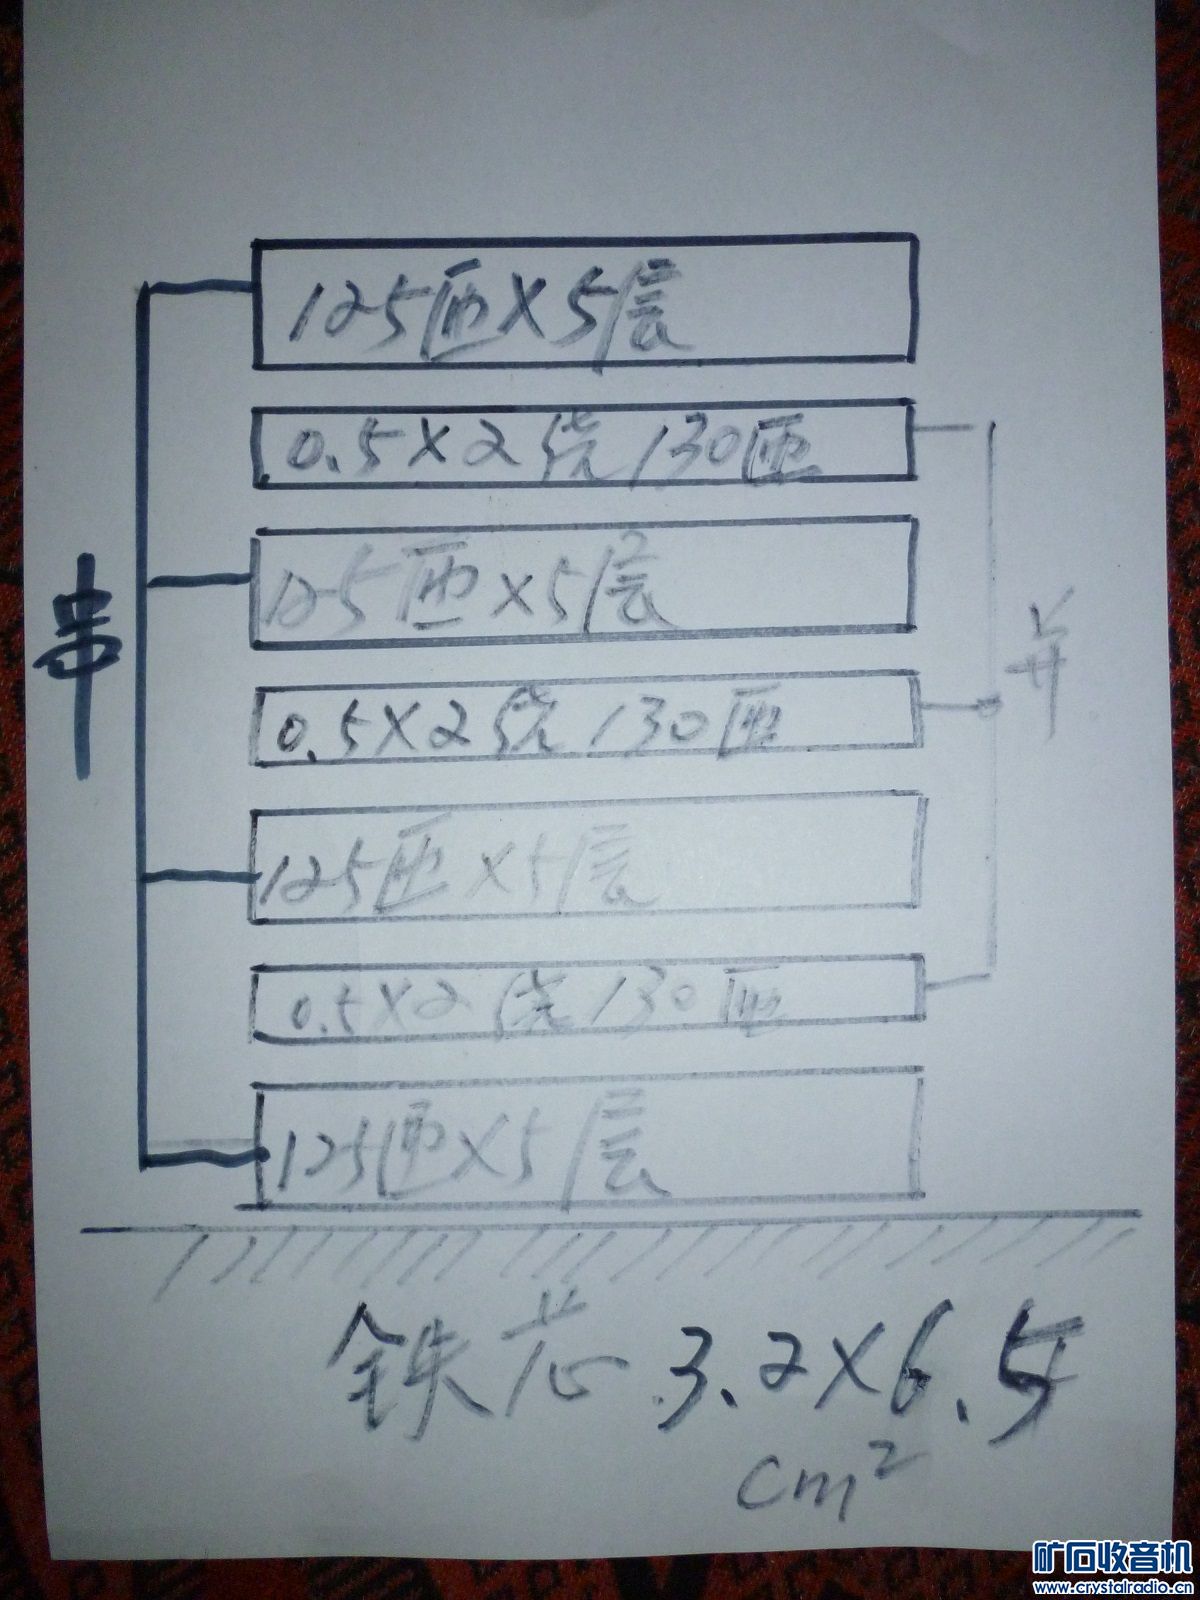 125匝×5层
0.5×2绕130匝
125匝×5层
串
并
0.5×2绕130匝
125匝×5层
0.5×2绕130匝
125匝×5层
铁芯3.2×6.5
cm²
矿石收音机
www.crystalradio.cn